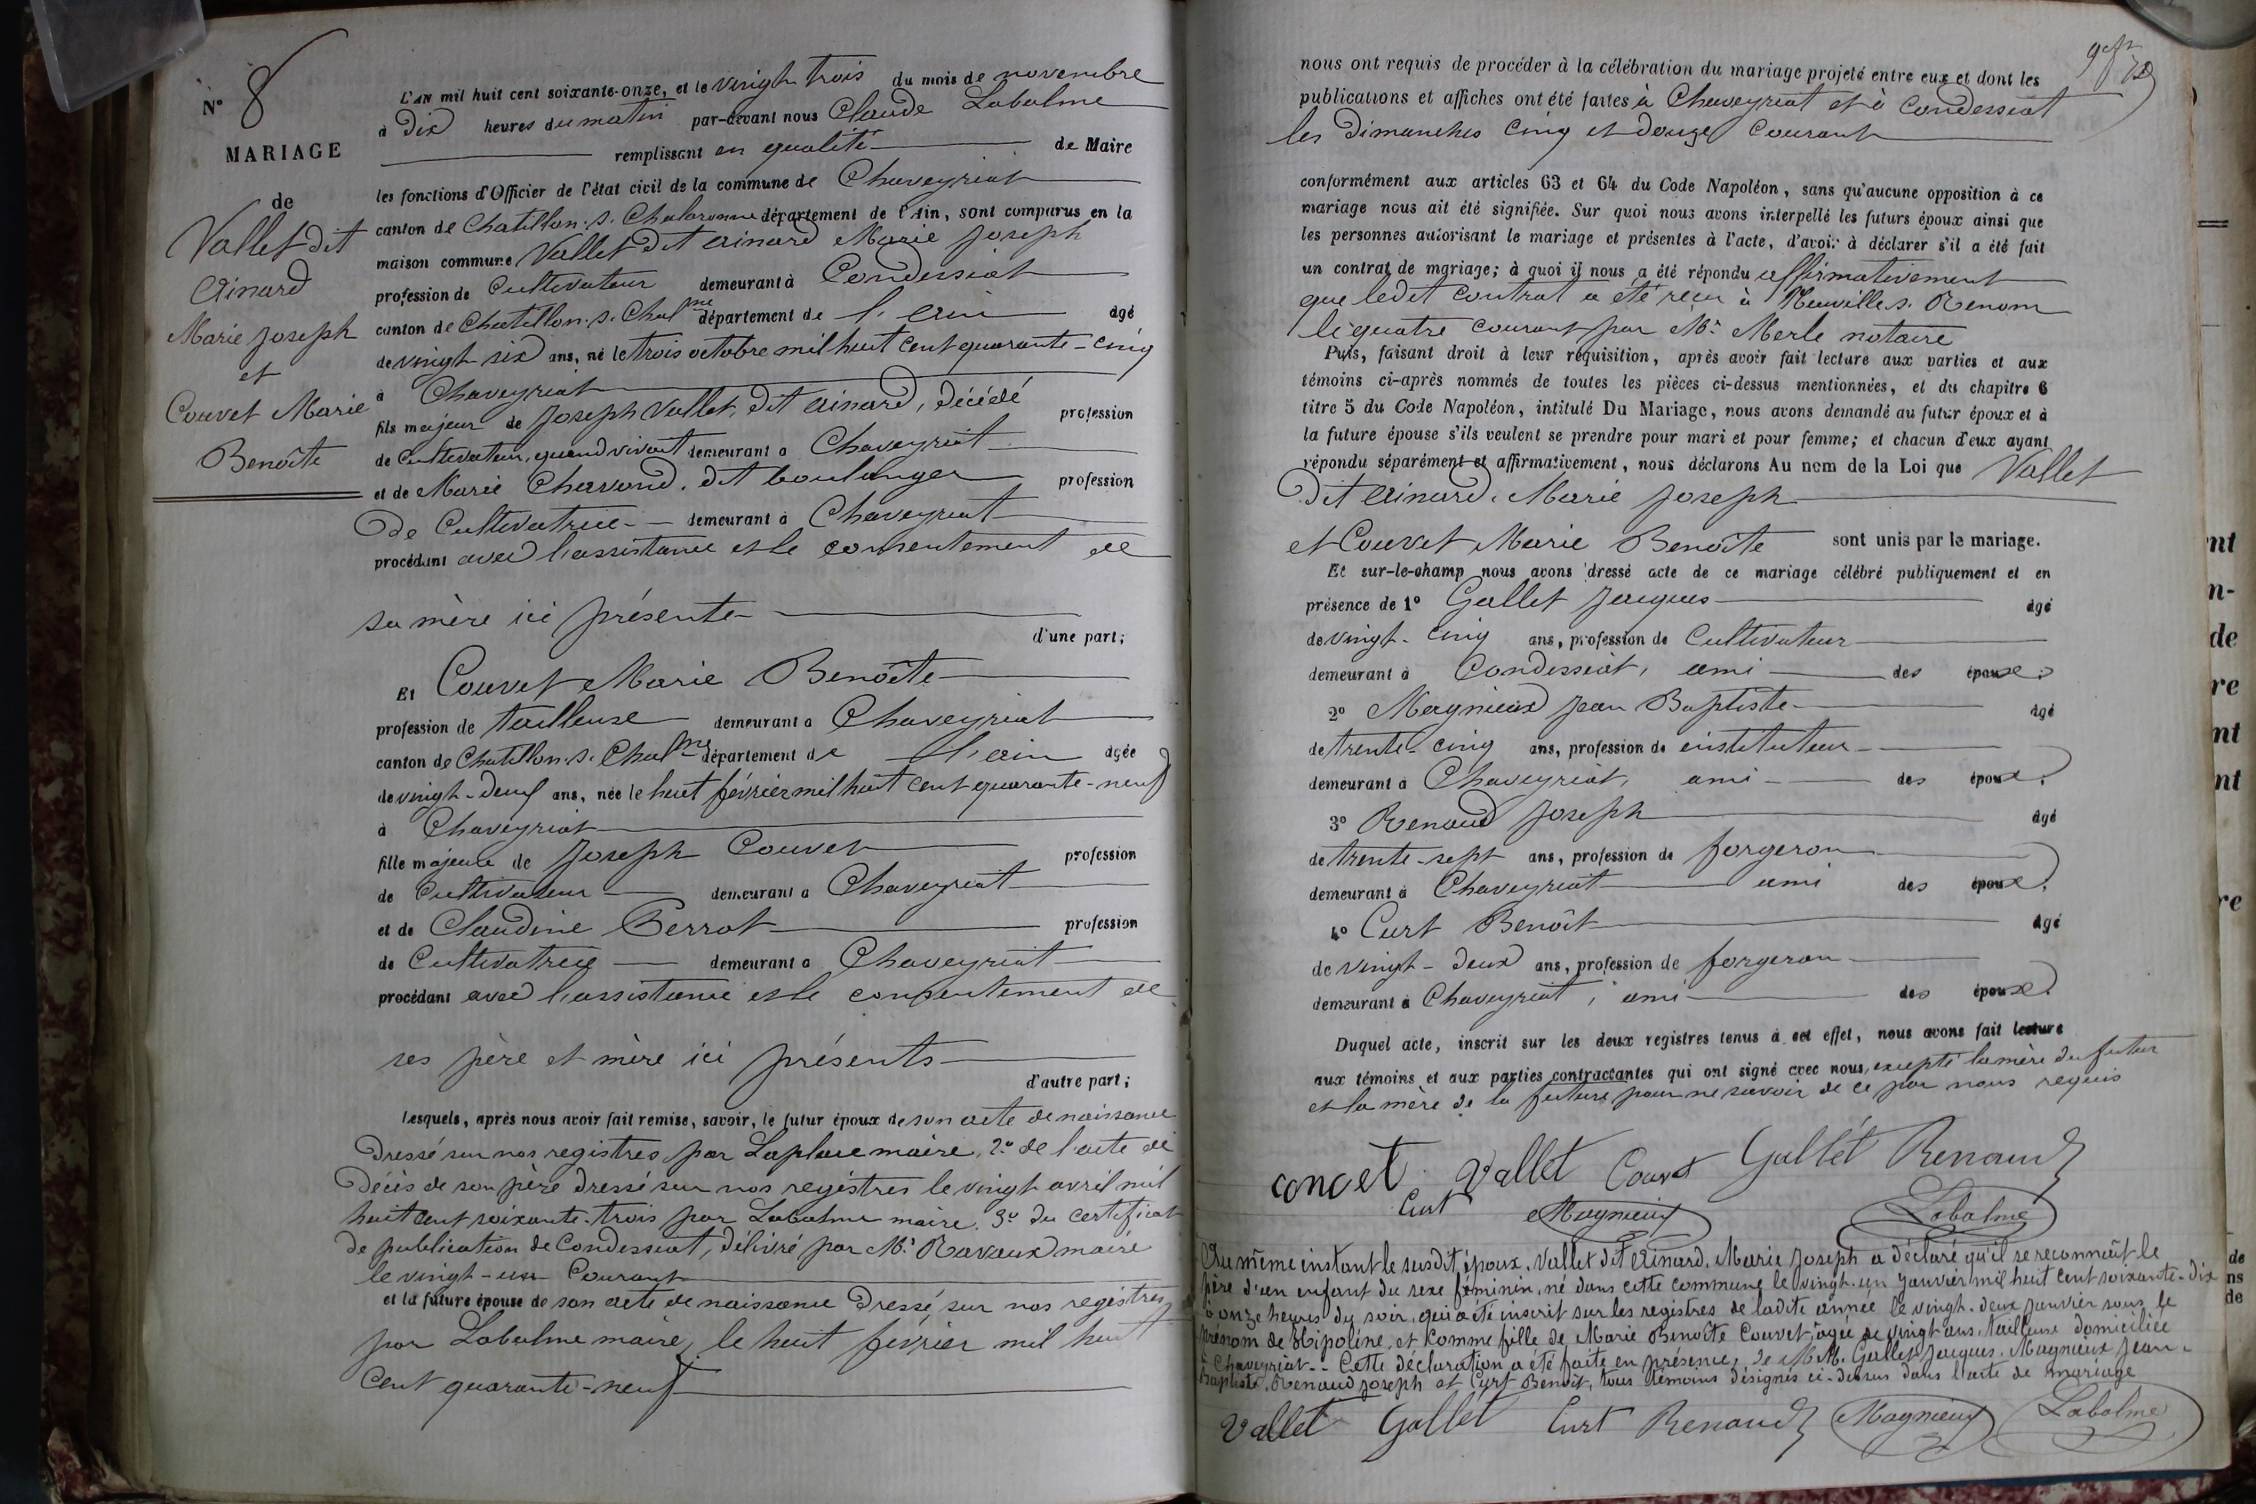 N° 8
MARIAGE
de
Vallet dit
Ainard
Marie Joseph
et
Couvet Marie
Benoîte
L'AN mil huit cent soixante-onze, et le vingt trois du mois de novembre
à Dix heures du matin par-devant nous Claude Labalme
remplissant en qualité de Maire
les fonctions d'Officier de l'état civil de la commune de Chaveyriat
canton de Chatillon. s. Chalaronne département de l'Ain, sont comparus en la
maison commune Vallet dit Ainard Marie Joseph
profession de Cultivateur demeurant à Condessiat
canton de Chatillon. s. Chal me département de l'Ain âgé
de vingt six ans, né le trois octobre mil huit cent quarante-cinq
à Chaveyriat
fils majeur de Joseph Vallet, dit Ainard, décédé profession
de Cultivateur, quand vivait demeurant à Chaveyriat
et de Marie Chavand. dit boulanger profession
De Cultivatrice demeurant à Chaveyriat
procédant avec l'assistance et le consentement de
sa mère ici présente
d'une part;
Et Couvet Marie Benoîte
profession de tailleuse demeurant à Chaveyriat
canton de Chatillon. s. Chal me département de l'Ain âgée
de vingt-deux ans, née le huit février mil huit cent quarante-neuf
à Chaveyriat
fille majeure de Joseph Couvet profession
de Cultivateur demeurant à Chaveyriat
et de Claudine Perrot profession
de Cultivatrice demeurant à Chaveyriat
procédant avec l'assistance et le consentement de
ses père et mère ici présents
d'autre part;
Lesquels, après nous avoir fait remise, savoir, le futur époux de son acte de naissance
dressé sur nos registres par Laplace maire, 2° de l'acte de
Décès de son père dressé sur nos registres le vingt avril mil
huit cent soixante-trois par Labalme maire. 3° du certificat
de publication de Condessiat, délivré par Mr Ravaux maire
le vingt-un Courant
et la future épouse de son acte de naissance dressé, sur nos registres
par Labalme maire, le huit février mil huit
Cent quarante-neuf
nous ont requis de procéder à la célébration du mariage projeté entre eux et dont les
publications et affiches ont été faites à Chaveyriat et à Condessiat
les Dimanches Cinq et douze Courant
conformément aux articles 63 et 64 du Code Napoléon, sans qu'aucune opposition à ce
mariage nous ait été signifiée. Sur quoi nous avons interpellé les futurs époux ainsi que
les personnes autorisant le mariage et présentes à l'acte, d'avoir à déclarer s'il a été fait
un contrat de mariage; à quoi il nous a été répondu affirmativement
que ledit contrat a été reçu à Neuville s. Renom
le quatre courant par Mr Merle notaire
Puis, faisant droit à leur réquisition, après avoir fait lecture aux parties et aux
témoins ci-après nommés de toutes les pièces ci-dessus mentionnées, et du chapitre 6
titre 5 du Code Napoléon, intitulé Du Mariage, nous avons demandé au futur époux et à
la future épouse s'ils veulent se prendre pour mari et pour femme; et chacun d'eux ayant
répondu séparément et affirmativement, nous déclarons Au nom de la Loi que Vallet
Dit Ainard. Marie Joseph
et Couvet Marie Benoîte sont unis par le mariage.
Et sur-le-champ nous avons dressé acte de ce mariage célébré publiquement et en
présence de 1° Gallet Jacques âgé
de vingt-cinq ans, profession de Cultivateur
demeurant à Condessiat, ami des époux.
2° Magnieux Jean Baptiste âgé
de trente-cinq ans, profession de instituteur
demeurant à Chaveyriat, ami des époux.
3° Renaud Joseph âgé
de trente-sept ans, profession de forgeron
demeurant à Chaveyriat ami des époux.
4° Curt Benoît âgé
de vingt-deux ans, profession de forgeron
demeurant à Chaveyriat, ami des époux.
Duquel acte, inscrit sur les deux registres tenus à cet effet, nous avons fait lecture
aux témoins et aux parties contractantes qui ont signé avec nous, excepté la mère du futur
et la mère de la future pour ne savoir de ce par nous requis
Vallet Couvet Gallet Renaud
Curt Magnieux Labalme
Au même instant le susdit époux. Vallet dit Ainard. Marie Joseph a déclaré qu'il se reconnaît le
père d'un enfant du sexe féminin, né dans cette commune le vingt-un janvier mil huit cent soixante-dix
à onze heures du soir, qui a été inscrit sur les registres de ladite année le vingt-deux janvier sous le
prénom de Hipoline, et comme fille de Marie Benoîte Couvet, âgée de vingt ans, tailleuse domiciliée
à Chaveyriat. - Cette déclaration a été faite en présence, de M.M. Gallet Jacques. Magnieux Jean-
Baptiste. Renaud Joseph et Curt Benoît, tous témoins désignés ci-dessus dans l'acte de mariage
Vallet Gallet Curt Renaud Magnieux Labalme